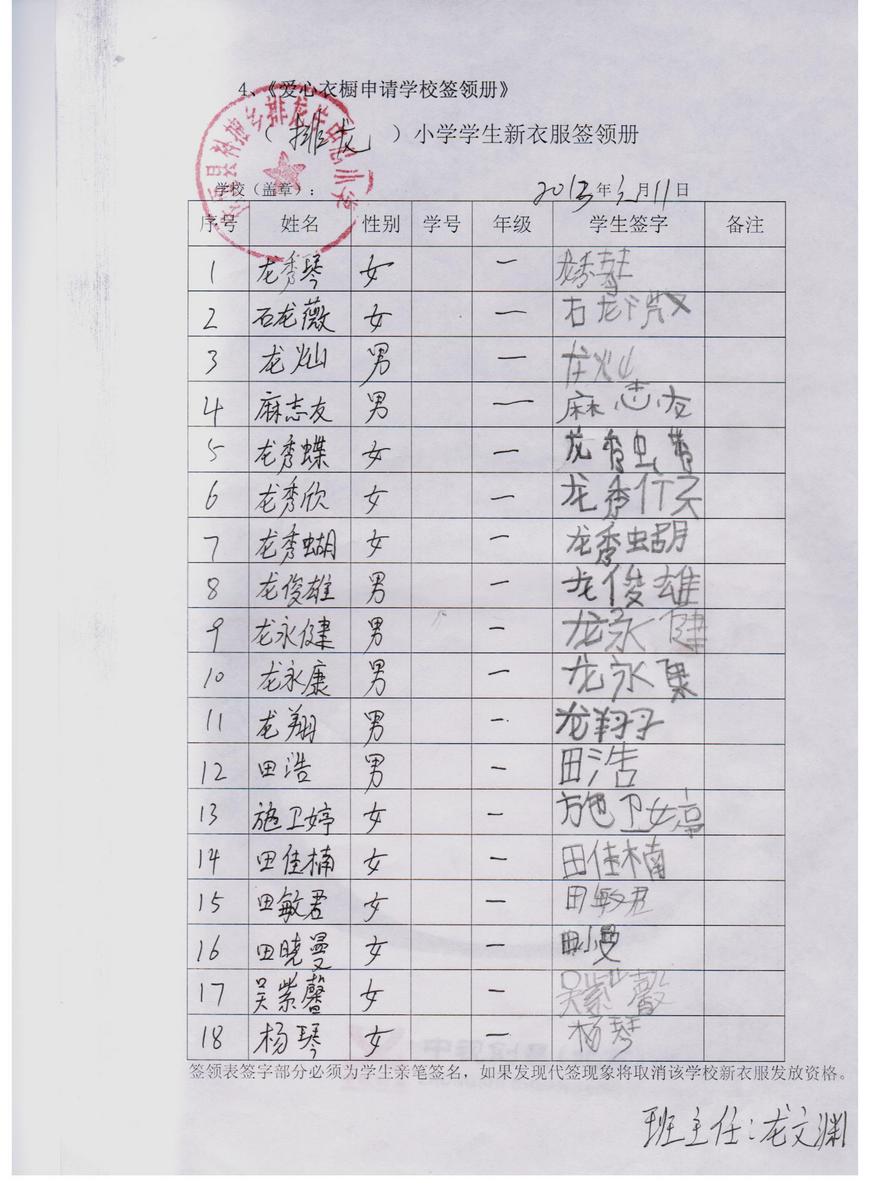 4、《爱心衣橱申请学校签领册》
（ 排龙 ）小学学生新衣服签领册
学校（盖章）： 2013年 月11日
序号 姓名 性别 学号 年级 学生签字 备注
1 龙秀琴 女 一 龙秀琴
2 石龙薇 女 一 石龙薇
3 龙灿 男 一 龙灿
4 麻志友 男 一 麻志友
5 龙秀蝶 女 一 龙秀蝶
6 龙秀欣 女 一 龙秀
7 龙秀蝴 女 一 龙秀蝴
8 龙俊雄 男 一 龙俊雄
9 龙永健 男 一 龙永健
10 龙永康 男 一 龙永
11 龙翔 男 一 龙翔
12 田浩 男 一 田浩
13 施卫婷 女 一 施卫婷
14 田佳楠 女 一 田佳楠
15 田敏君 女 一 田敏君
16 田晓曼 女 一 田 曼
17 吴紫馨 女 一 吴紫馨
18 杨琴 女 一 杨琴
签领表签字部分必须为学生亲笔签名，如果发现代签现象将取消该学校新衣服发放资格。
班主任：龙文渊